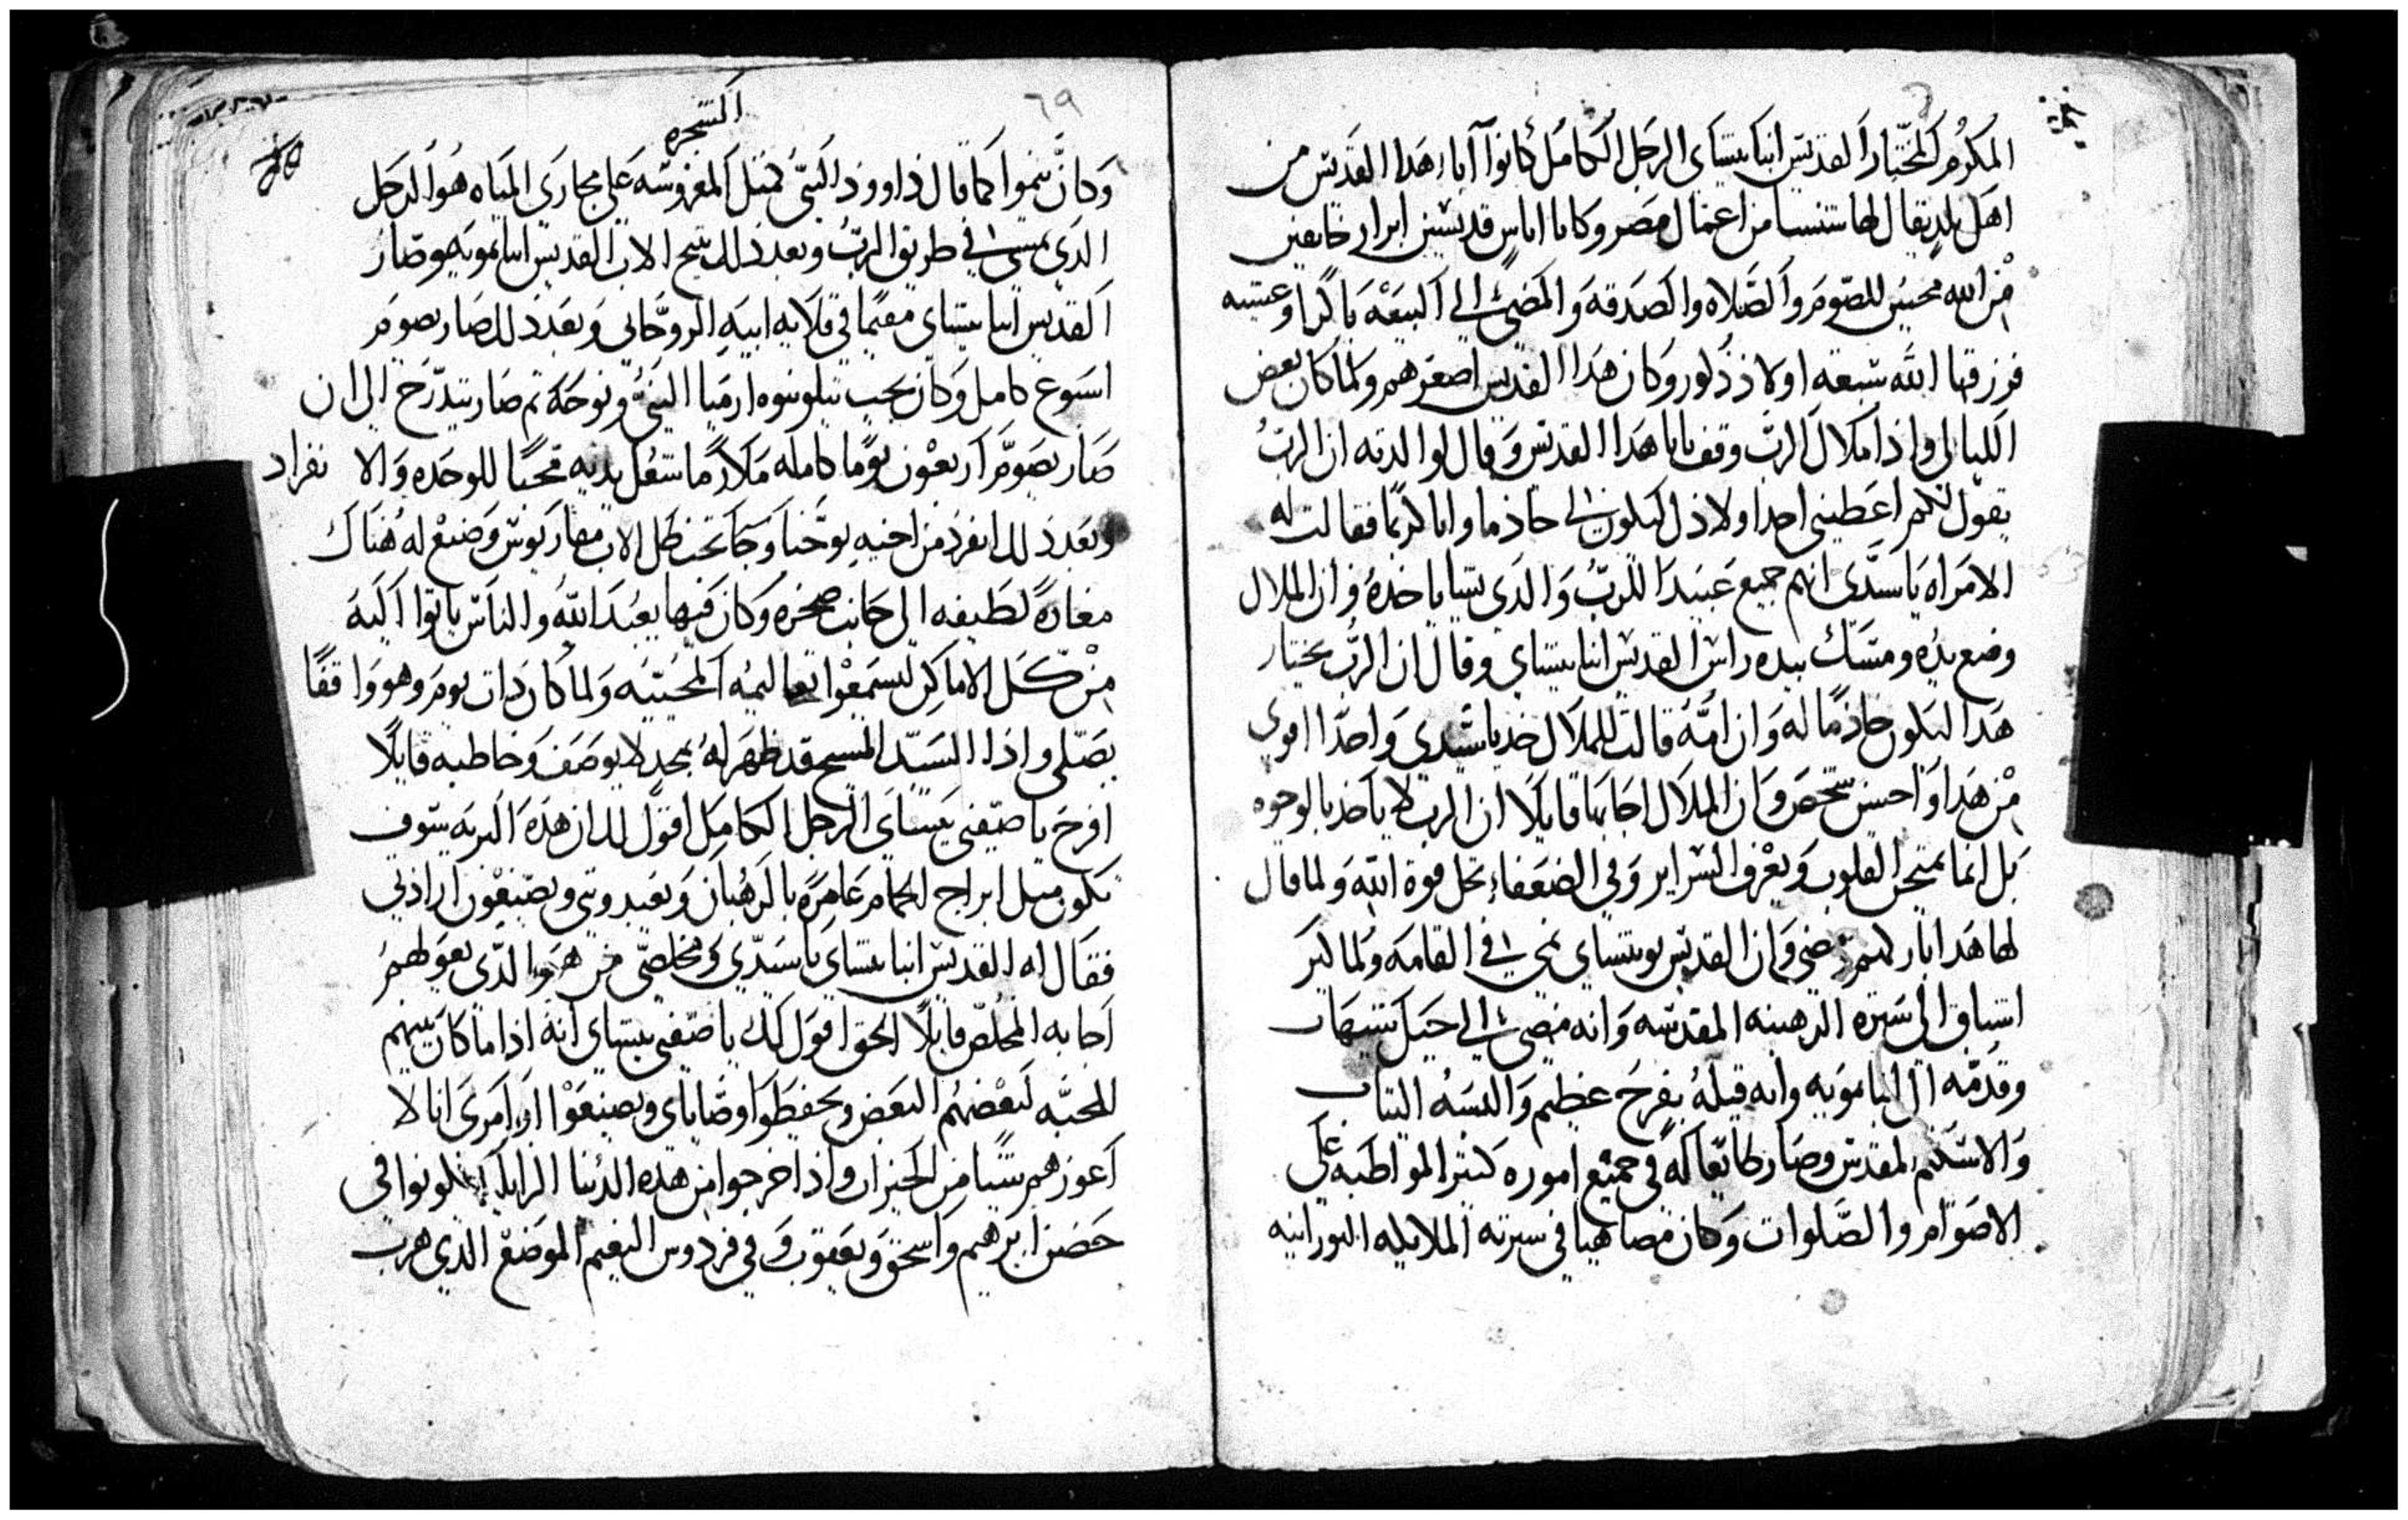 المكرم المختار القديس انبا بيشاي الرجل الكامل كانوا آباء هدا القديس من
اهل بلد يقال لها شنسا من اعمال مصر وكانا اناس قديسين ابرار خايفين
من الله محبين للصوم والصلاه والصدقه والمضي الى البيعه باكرا وعشيه
فرزقهما الله سبعه اولاد ذكور وكان هدا القديس اصغرهم ولما كان بعض
الليالي واذا ملاك الرب وقف بابا هدا القديس وقال لوالدته ان الرب
يقول لكم اعطيني احد اولادك ليكون لي خادما وانا كريما فقالت له
الامراه يا سيدي انهم جميع عبيدا للرب والدي تشا ياخده وان الملاك
وضع يده ومسك بيده راس القديس انبا بيشاي وقال ان الرب يختار
هدا ليكون خادما له وان امه قالت للملاك خد يا سيدي واحدا اقوى
من هدا واحسن شخص وان الملاك اجابها قايلا ان الرب لا ياخد بالوجوه
بل انما يمتحن القلوب ويعرف السراير وفي الضعفاء تحل قوة الله ولما قال
لها هدا باركهم ومضى وان القديس بو بيشاي نمى في القامه ولما كبر
اشتاق الى سيره الرهبنه المقدسه وانه مضى الى جبل شيهات
وقدمه الى انبا بمويه وانه قبله بفرح عظيم والبسه التياب
والاسكيم المقدس وصار طايعا له في جميع اموره كتير المواظبه على
الاصوام والصلوات وكان مضاهيا في سيرته الملايكه النورانيه
٦٩
الشجره
وكان ينموا كما قال داوود النبي كمتل المغروسه على مجاري المياه هوا الرجل
الدي يمشي في طريق الرب وبعد ذلك تنيح الاب القديس انبا بمويه وصار
القديس انبا بيشاي مقيما في قلايه ابيه الروحاني وبعد ذلك صار يصوم
اسبوع كامل وكان يحب يتلو نبوه ارميا النبي ونوحه تم صار يتدرج الى ان
صار يصوم اربعون يوما كامله ملازما شغل يديه محبا للوحده والانفراد
وبعد ذلك انفرد من اخيه يوحنا وجا تحت ظل الاب مقاريوس وصنع له هناك
مغارةً لطيفه الى جانب صخره وكان فيها يعبد الله والناس ياتوا اليه
من كل الاماكن ليسمعوا تعاليمه المحييه ولما كان دات يوم وهو واقفًا
يصلي واذا السيد المسيح قد ظهر له بمجد لا يوصف وخاطبه قايلا
افرح يا صفيي بيشاي الرجل الكامل اقول لك ان هده البريه سوف
تكون ميل ابراج الحمام عامرة بالرهبان ويعبدوني ويصنعون ارادتي
فقال له القديس انبا بيشاي يا سيدي ومخلصي من هو الدي يعولهم
اجابه المخلص قايلا الحق اقول لك يا صفيي بيشاي انه اذا ما كان بينهم
المحبه لبعضهم البعض ويحفظوا وصاياي ويصنعوا اوامري انا لا
اعوزهم شيا من الخيرات واذا خرجوا من هده الدنيا الزايله يكونوا في
حضن ابرهيم واسحق ويعقوب وفي فردوس النعيم الموضع الدي هرب